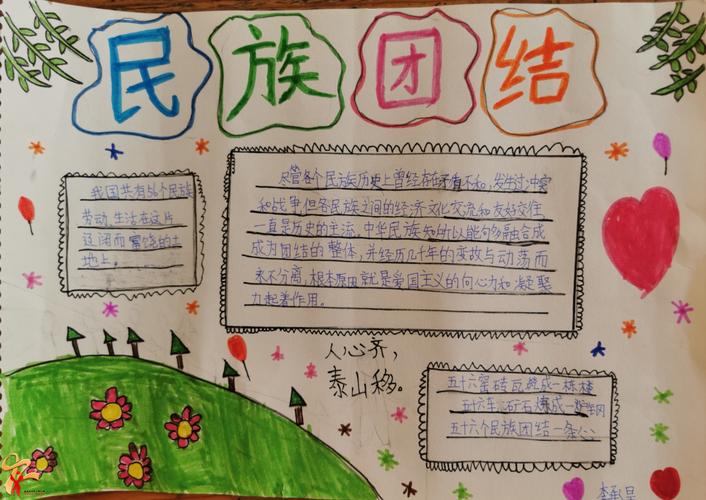 民族团结
我国共有56个民族
劳动生活在这片
辽阔而富饶的土
地上。
尽管各个民族历史上曾经存在矛盾不和,发生过冲突
和战争,但各民族之间的经济文化交流和友好交往
一直是历史的主流,中华民族知所以能够多融合成
成为团结的整体,并经历几千年的变故与动荡而
永不分离,根本原因就是爱国主义的向心力和凝聚
力起着作用。
人心齐,
泰山移。
五十六窑砖瓦绕成一栋楼
五十六车矿石炼成一炉钢
五十六个民族团结一条心